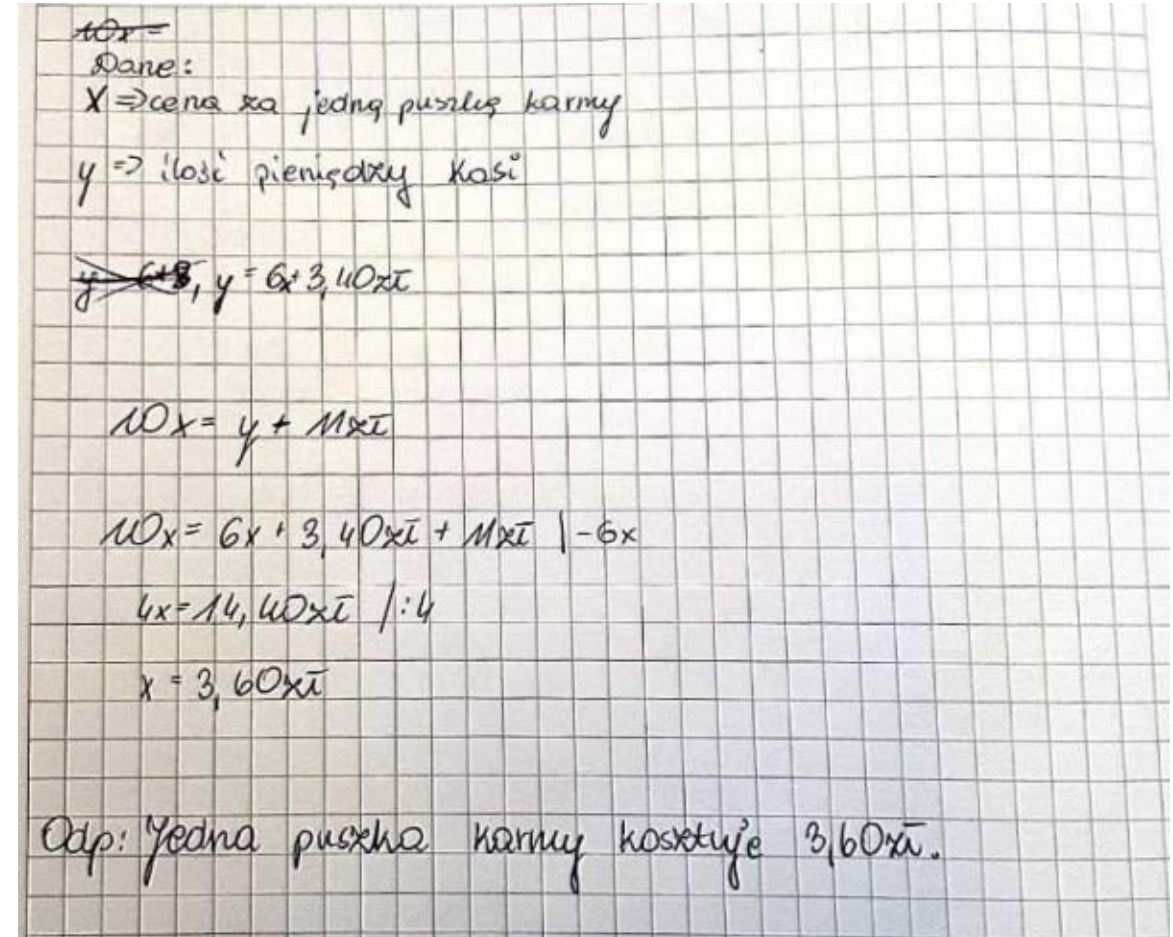 10x =
Dane:
X => cena za jedną puszkę karmy
y => ilość pieniędzy Kasi
y = 6x + 3,40zł
10x = y + 11zł
10x = 6x + 3,40zł + 11zł |-6x
4x = 14,40zł /:4
x = 3,60zł
Odp: Jedna puszka karmy kosztuje 3,60zł.